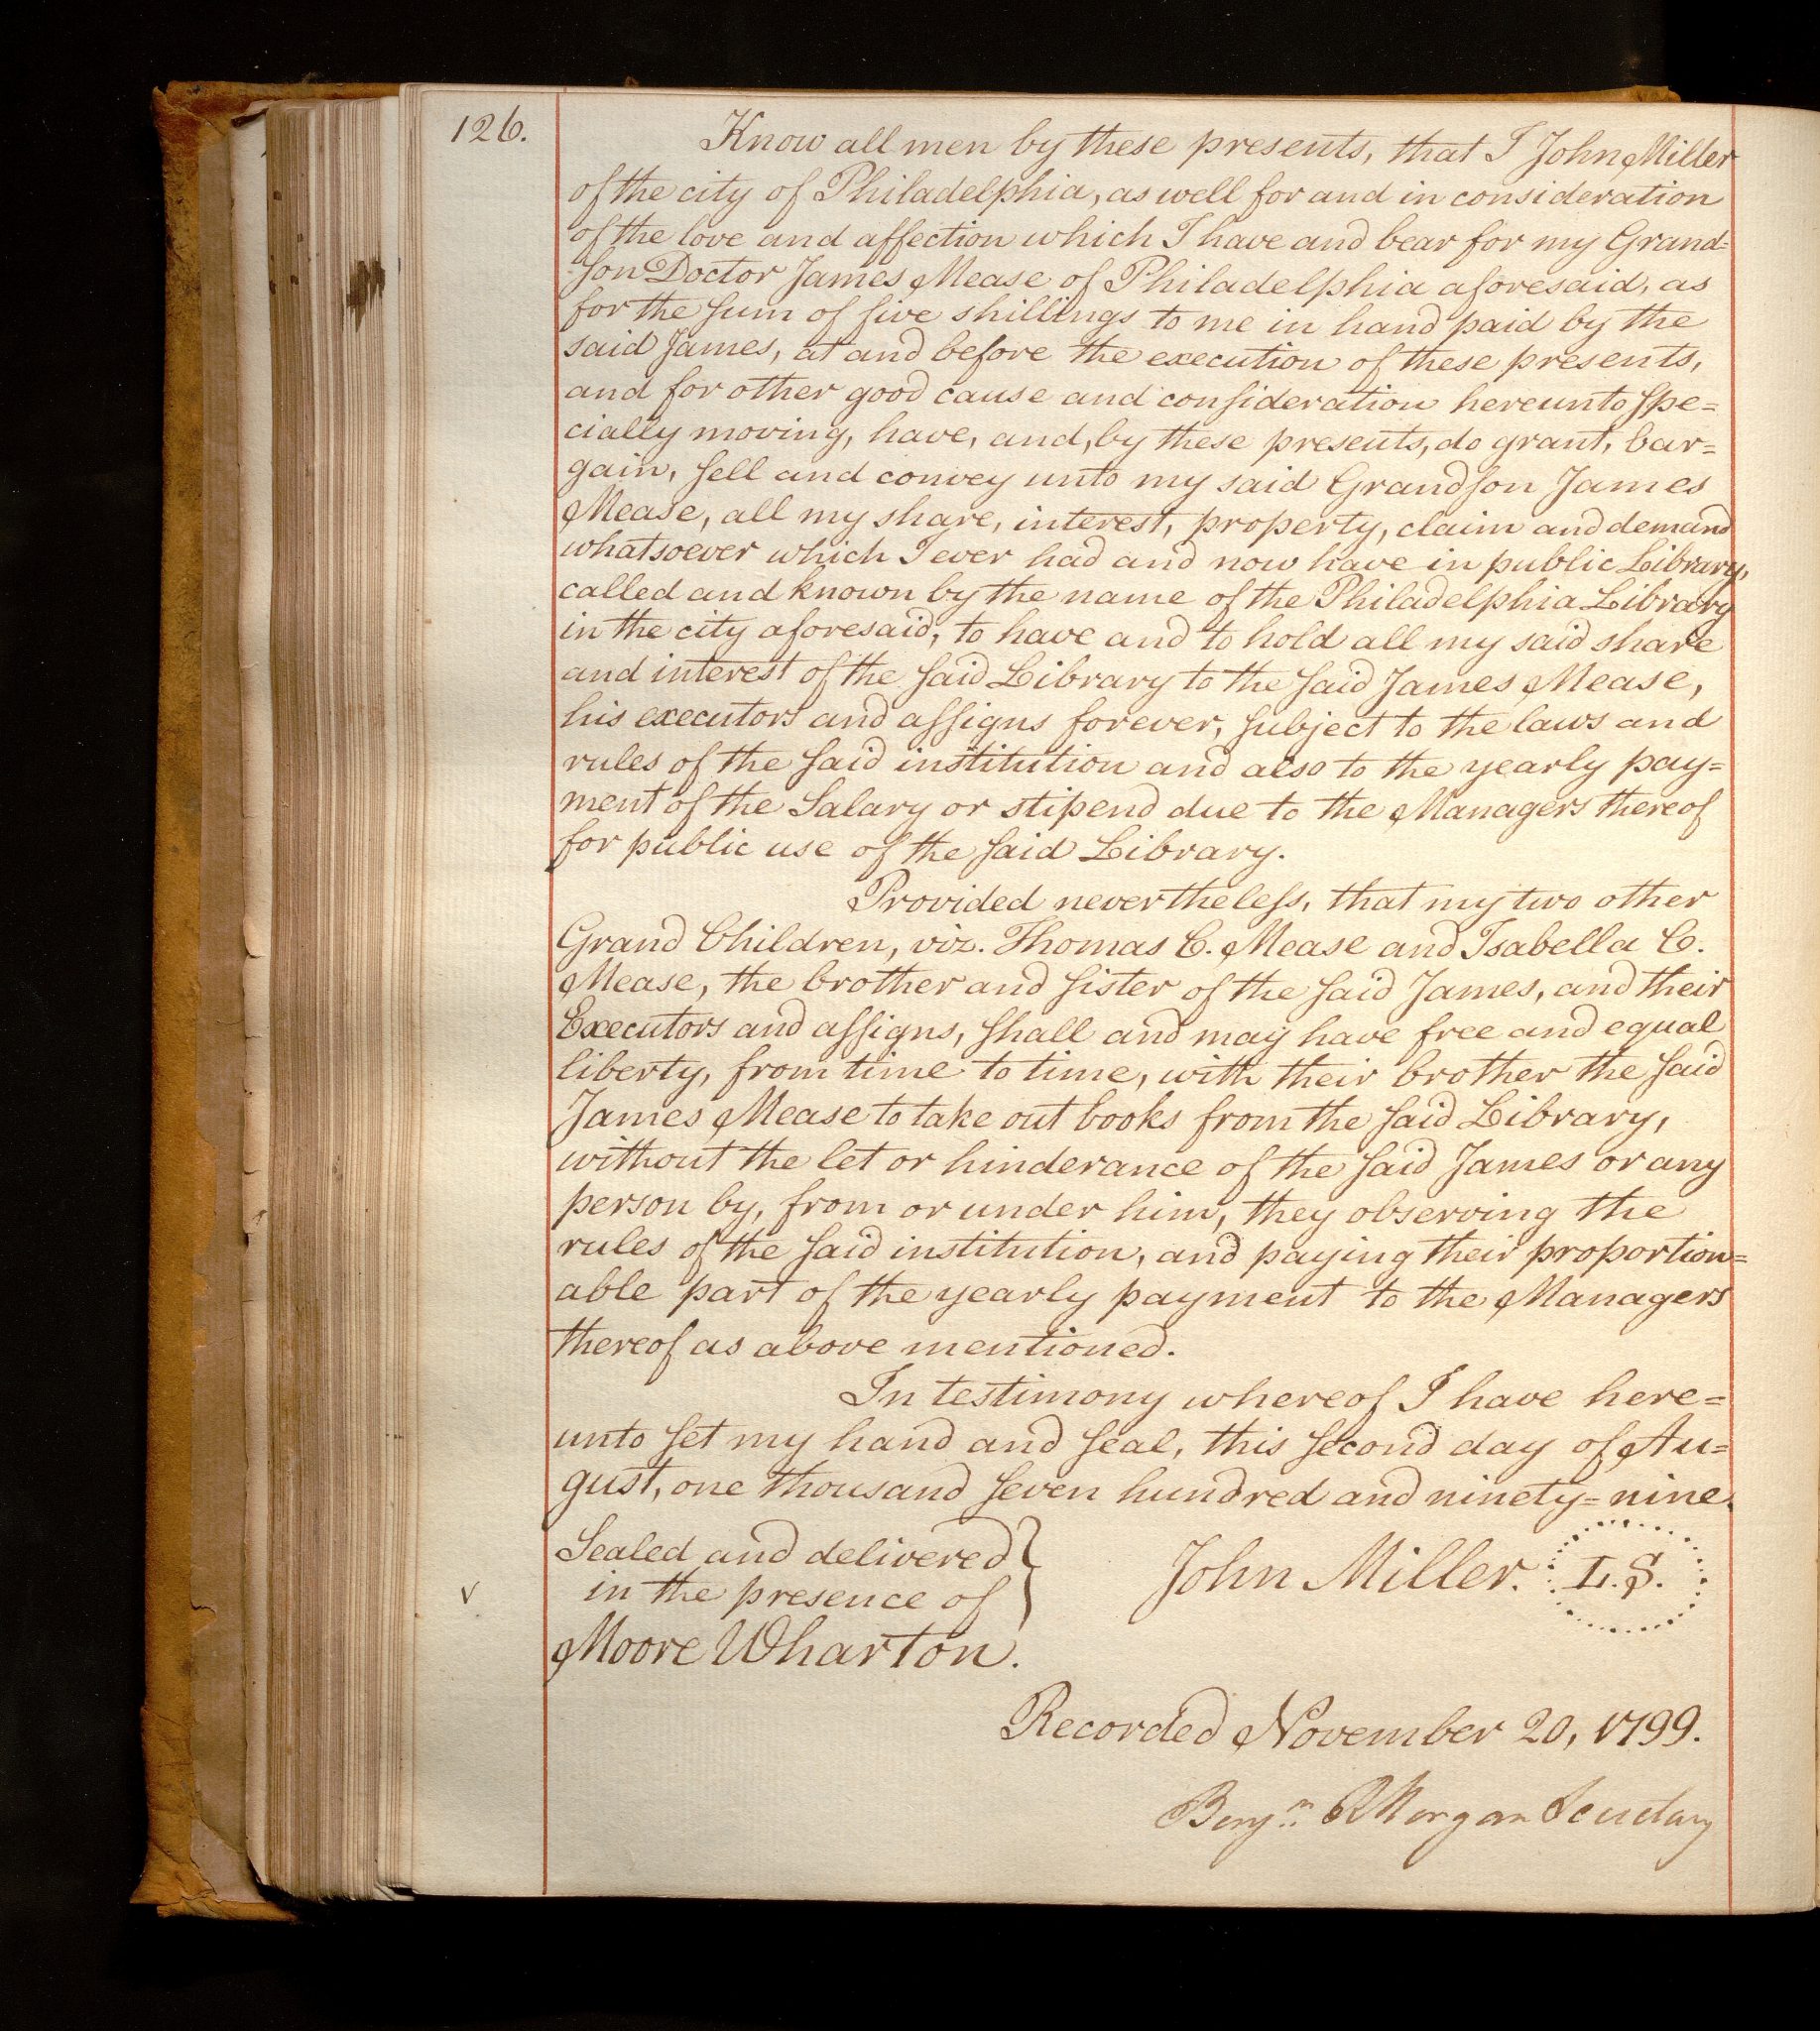 126.
Know all men by these presents, that I John Miller
of the city of Philadelphia, as well for and in consideration
of the love and affection which I have and bear for my Grand=
son Doctor James Mease of Philadelphia aforesaid, as
for the sum of five shillings to me in hand paid by the
said James, at and before the execution of these presents,
and for other good cause and consideration hereunto spe=
cially moving, have, and, by these presents, do grant, bar=
gain, sell and convey unto my said Grandson James
Mease, all my share, interest, property, claim and demand
whatsoever which I ever had and now have in public Library,
called and known by the name of the Philadelphia Library
in the city aforesaid, to have and to hold all my said share
and interest of the said Library to the said James Mease,
his executors and assigns forever, subject to the laws and
rules of the said institution and also to the yearly pay=
ment of the Salary or stipend due to the Managers thereof
for public use of the said Library.
Provided nevertheless, that my two other
Grand Children, viz. Thomas C. Mease and Isabella C.
Mease, the brother and sister of the said James, and their
Executors and assigns, shall and may have free and equal
liberty, from time to time, with their brother the said
James Mease to take out books from the said Library,
without the let or hinderance of the said James or any
person by, from or under him, they observing the
rules of the said institution, and paying their proportion=
able part of the yearly payment to the Managers
thereof as above mentioned.
In testimony whereof I have here=
unto set my hand and seal, this second day of Au=
gust, one thousand seven hundred and ninety=nine.
Sealed and delivered
in the presence of
John Miller. L.S.
v
Moore Wharton.
Recorded November 20, 1799.
Benjn. R Morgan Secretary